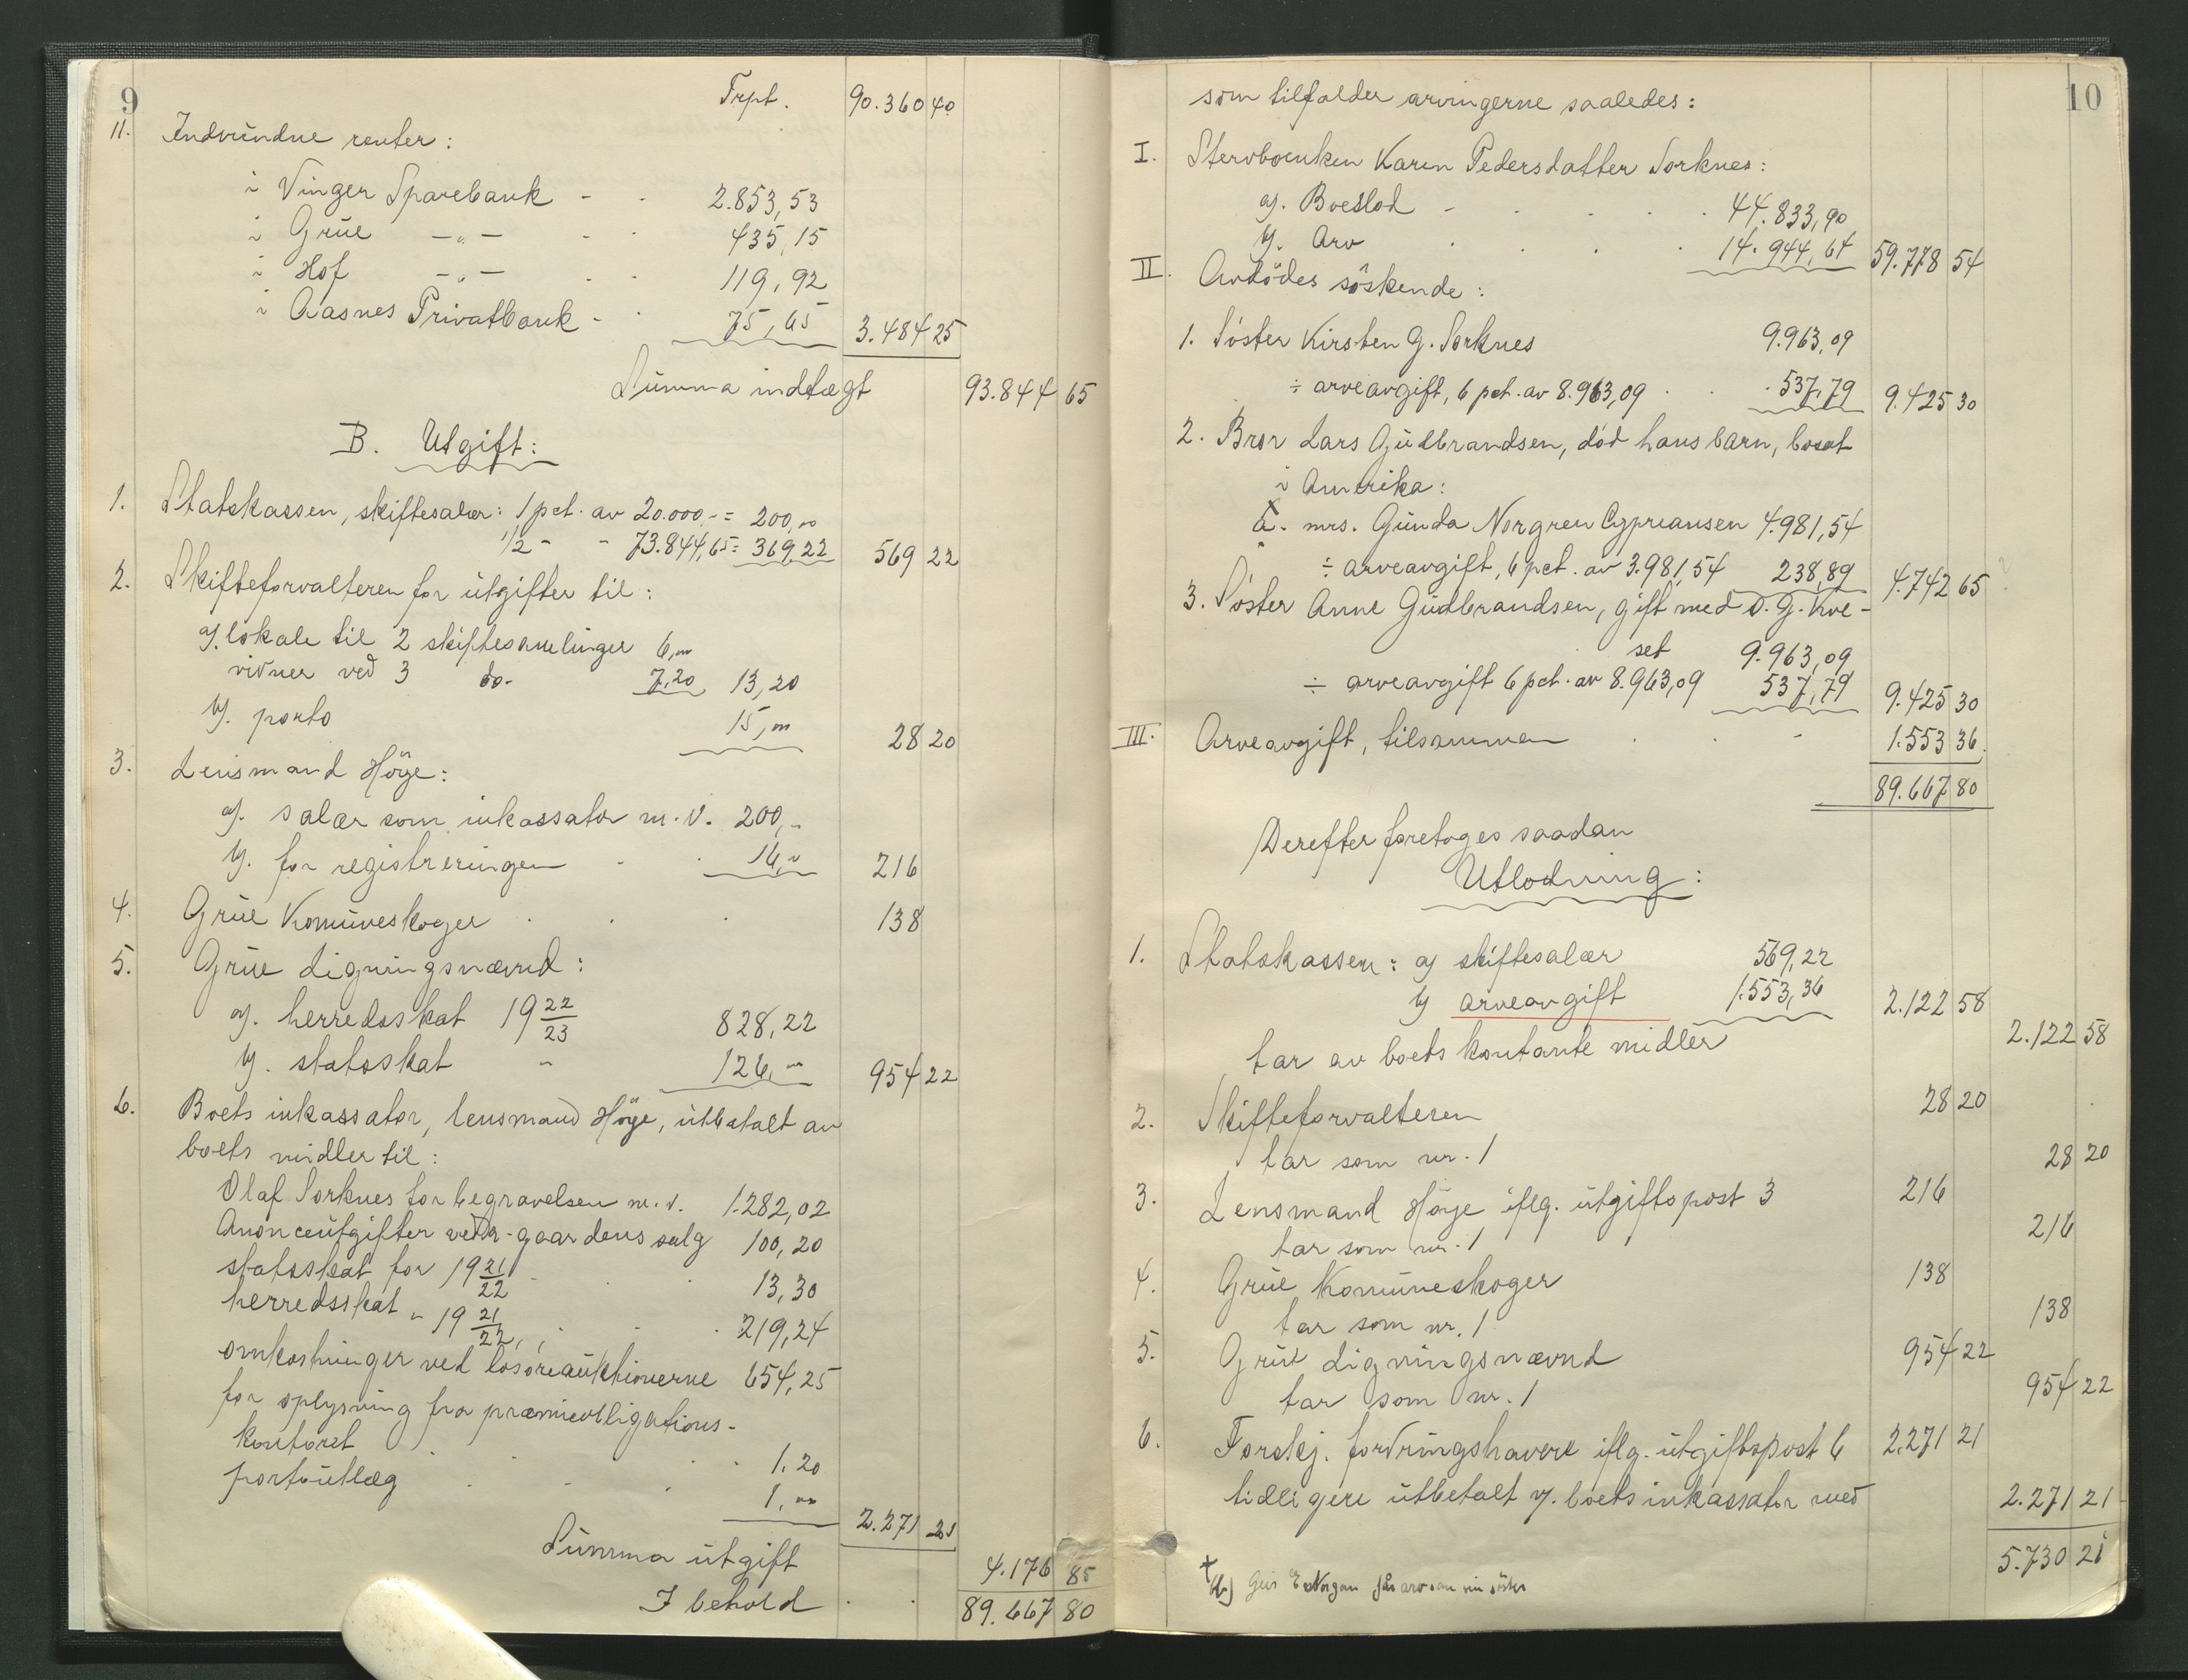 9
Trpt. 90.360 40
11. Indvundne renter:
i Vinger Sparebank - - 2.853,53
i Grue -"- - - 435,15
i Hof -"- - - 119,92
i Aasnes Privatbank - - 75,65 3.484 25
Summa indtægt 93.844 65
B. Utgift:
1. Statskassen, skiftesalær: 1 pct. av 20.000,- = 200,00
1/2 - - 73.844,65 = 369,22 569 22
2. Skifteforvalteren for utgifter til:
a/. lokale til 2 skiftesamlinger 6,00
vidner ved 3 do. 7,20 13,20
b/. porto 15,00 28 20
3. Lensmand Höye:
a/. salær som inkassator m.v. 200,-
b/. for registreringen - . 16,- 216
4. Grue Komuneskoger . . . 138
5. Grue Ligningsnævnd:
a/. herredsskat 19 22/23 828,22
b/. statsskat - 126,00 954 22
6. Boets inkassator, lensmand Höye, utbetalt av
boets midler til:
Olaf Sorknes for begravelsen m.v. 1.282,02
Anonceutgifter vedr. gaardens salg 100,20
statsskat for 19 21/22 . . 13,30
herredsskat " 19 21/22 . . 219,24
omkostninger ved lösöreauktionerne 654,25
for oplysning fra præmieobligations-
kontoret . . . 1.20
portoutlæg . . . 1,00 2.271 21
Summa utgift 4.176 85
I behold . . 89.667 80
10
som tilfalder arvingerne saaledes:
I. Stervboenken Karen Pedersdatter Sorknes:
a/. Boeslod - . . . . 44.833,90
b/. Arv . . . . 14.944,64 59.778 54
II. Avdödes söskende:
1. Söster Kirsten G. Sorknes 9.963,09
÷ arveavgift, 6 pct. av 8.963,09 . . 537,79 9.425 30
2. Bror Lars Gudbrandsen, död hans barn, bosat
i Amerika:
a. mrs. Gunda Norgren Cypreansen 4.981,54
÷ arveavgift, 6 pct. av 3.981,54 238,89 4.742 65
3. Söster Anne Gudbrandsen, gift med O. G. Kve-
set 9.963,09
÷ arveavgift 6 pct. av 8.963,09 537,79 9.425 30
III. Arveavgift, tilsammen . . - 1.553 36
89.667 80
Derefter foretoges saadan
Utlodning:
1. Statskassen: a/ skiftesalær 569,22
b/ arveavgift 1.553,36 2.122 58
tar av boets kontante midler 2.122 58
2. Skifteforvalteren 28 20
tar som nr. 1 28 20
3. Lensmand Höye iflg. utgiftspost 3 216
tar som nr. 1 216
4. Grue Komuneskoger 138
tar som nr. 1 138
5. Grue Ligningsnævnd 954 22
tar som nr. 1 954 22
6. Forskj. fordringshavere iflg. utgiftspost 6 2.271 21
tidligere utbetalt v/. boets inkassator med 2.271 21
5.730 21
+ b) Norgan får arv